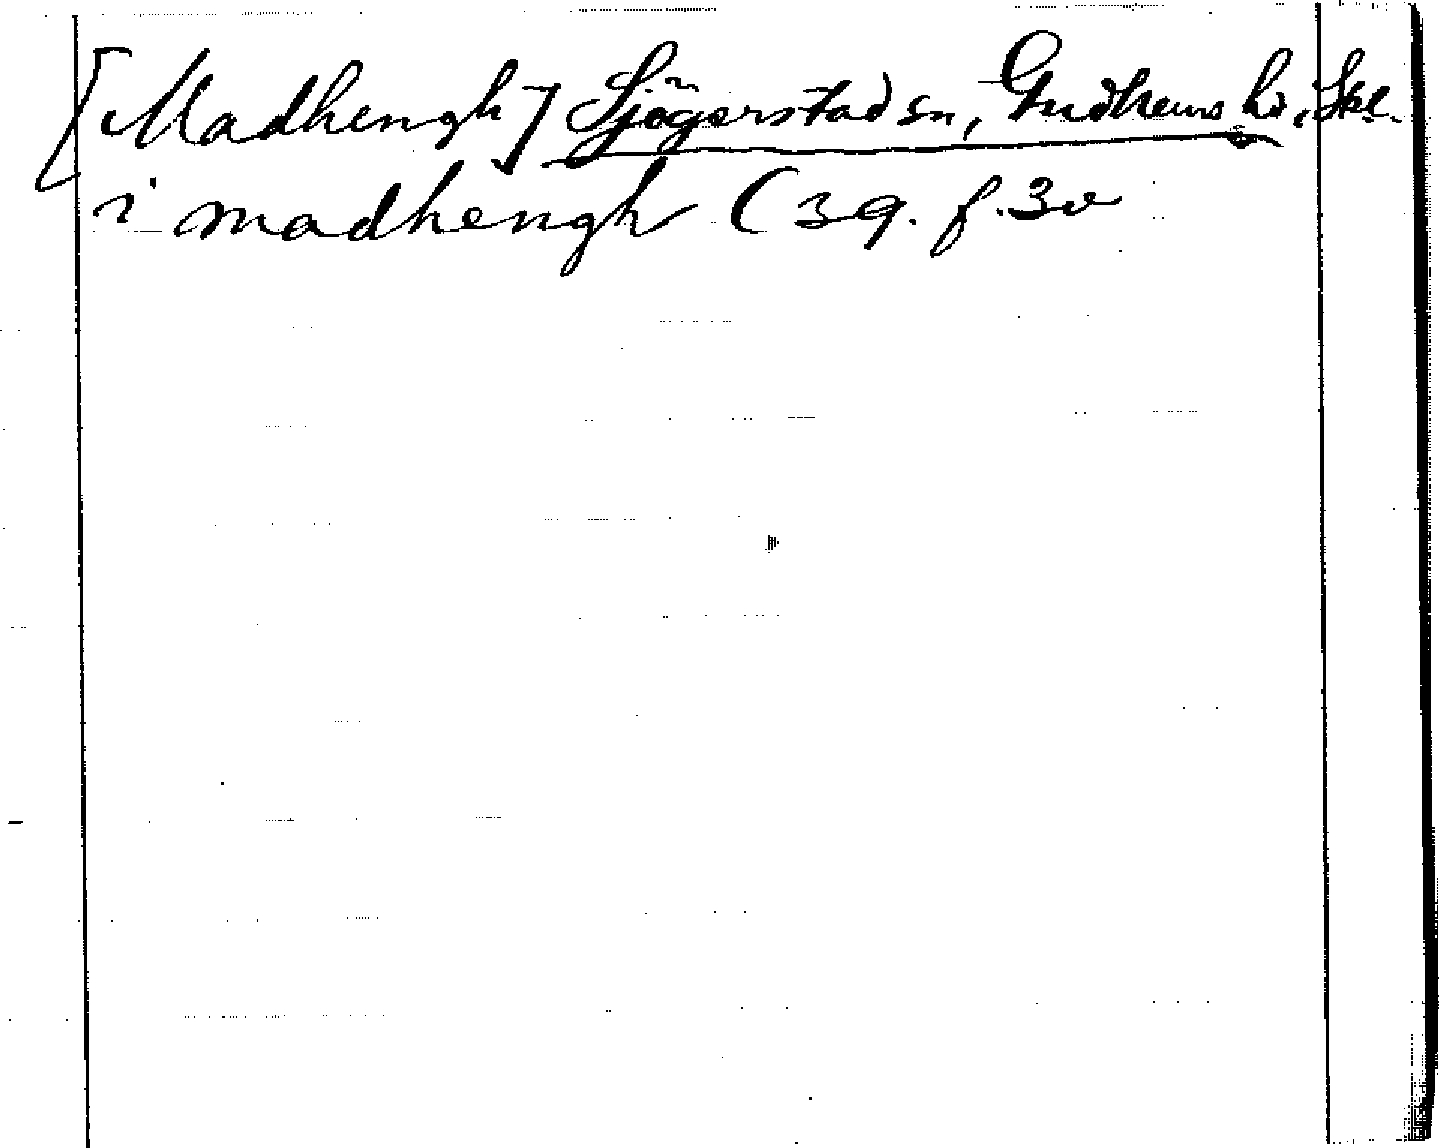 [Madhengh] Sjögerstad sn, Gudhems hd, Skl.
i madhengh (39. f. 3v